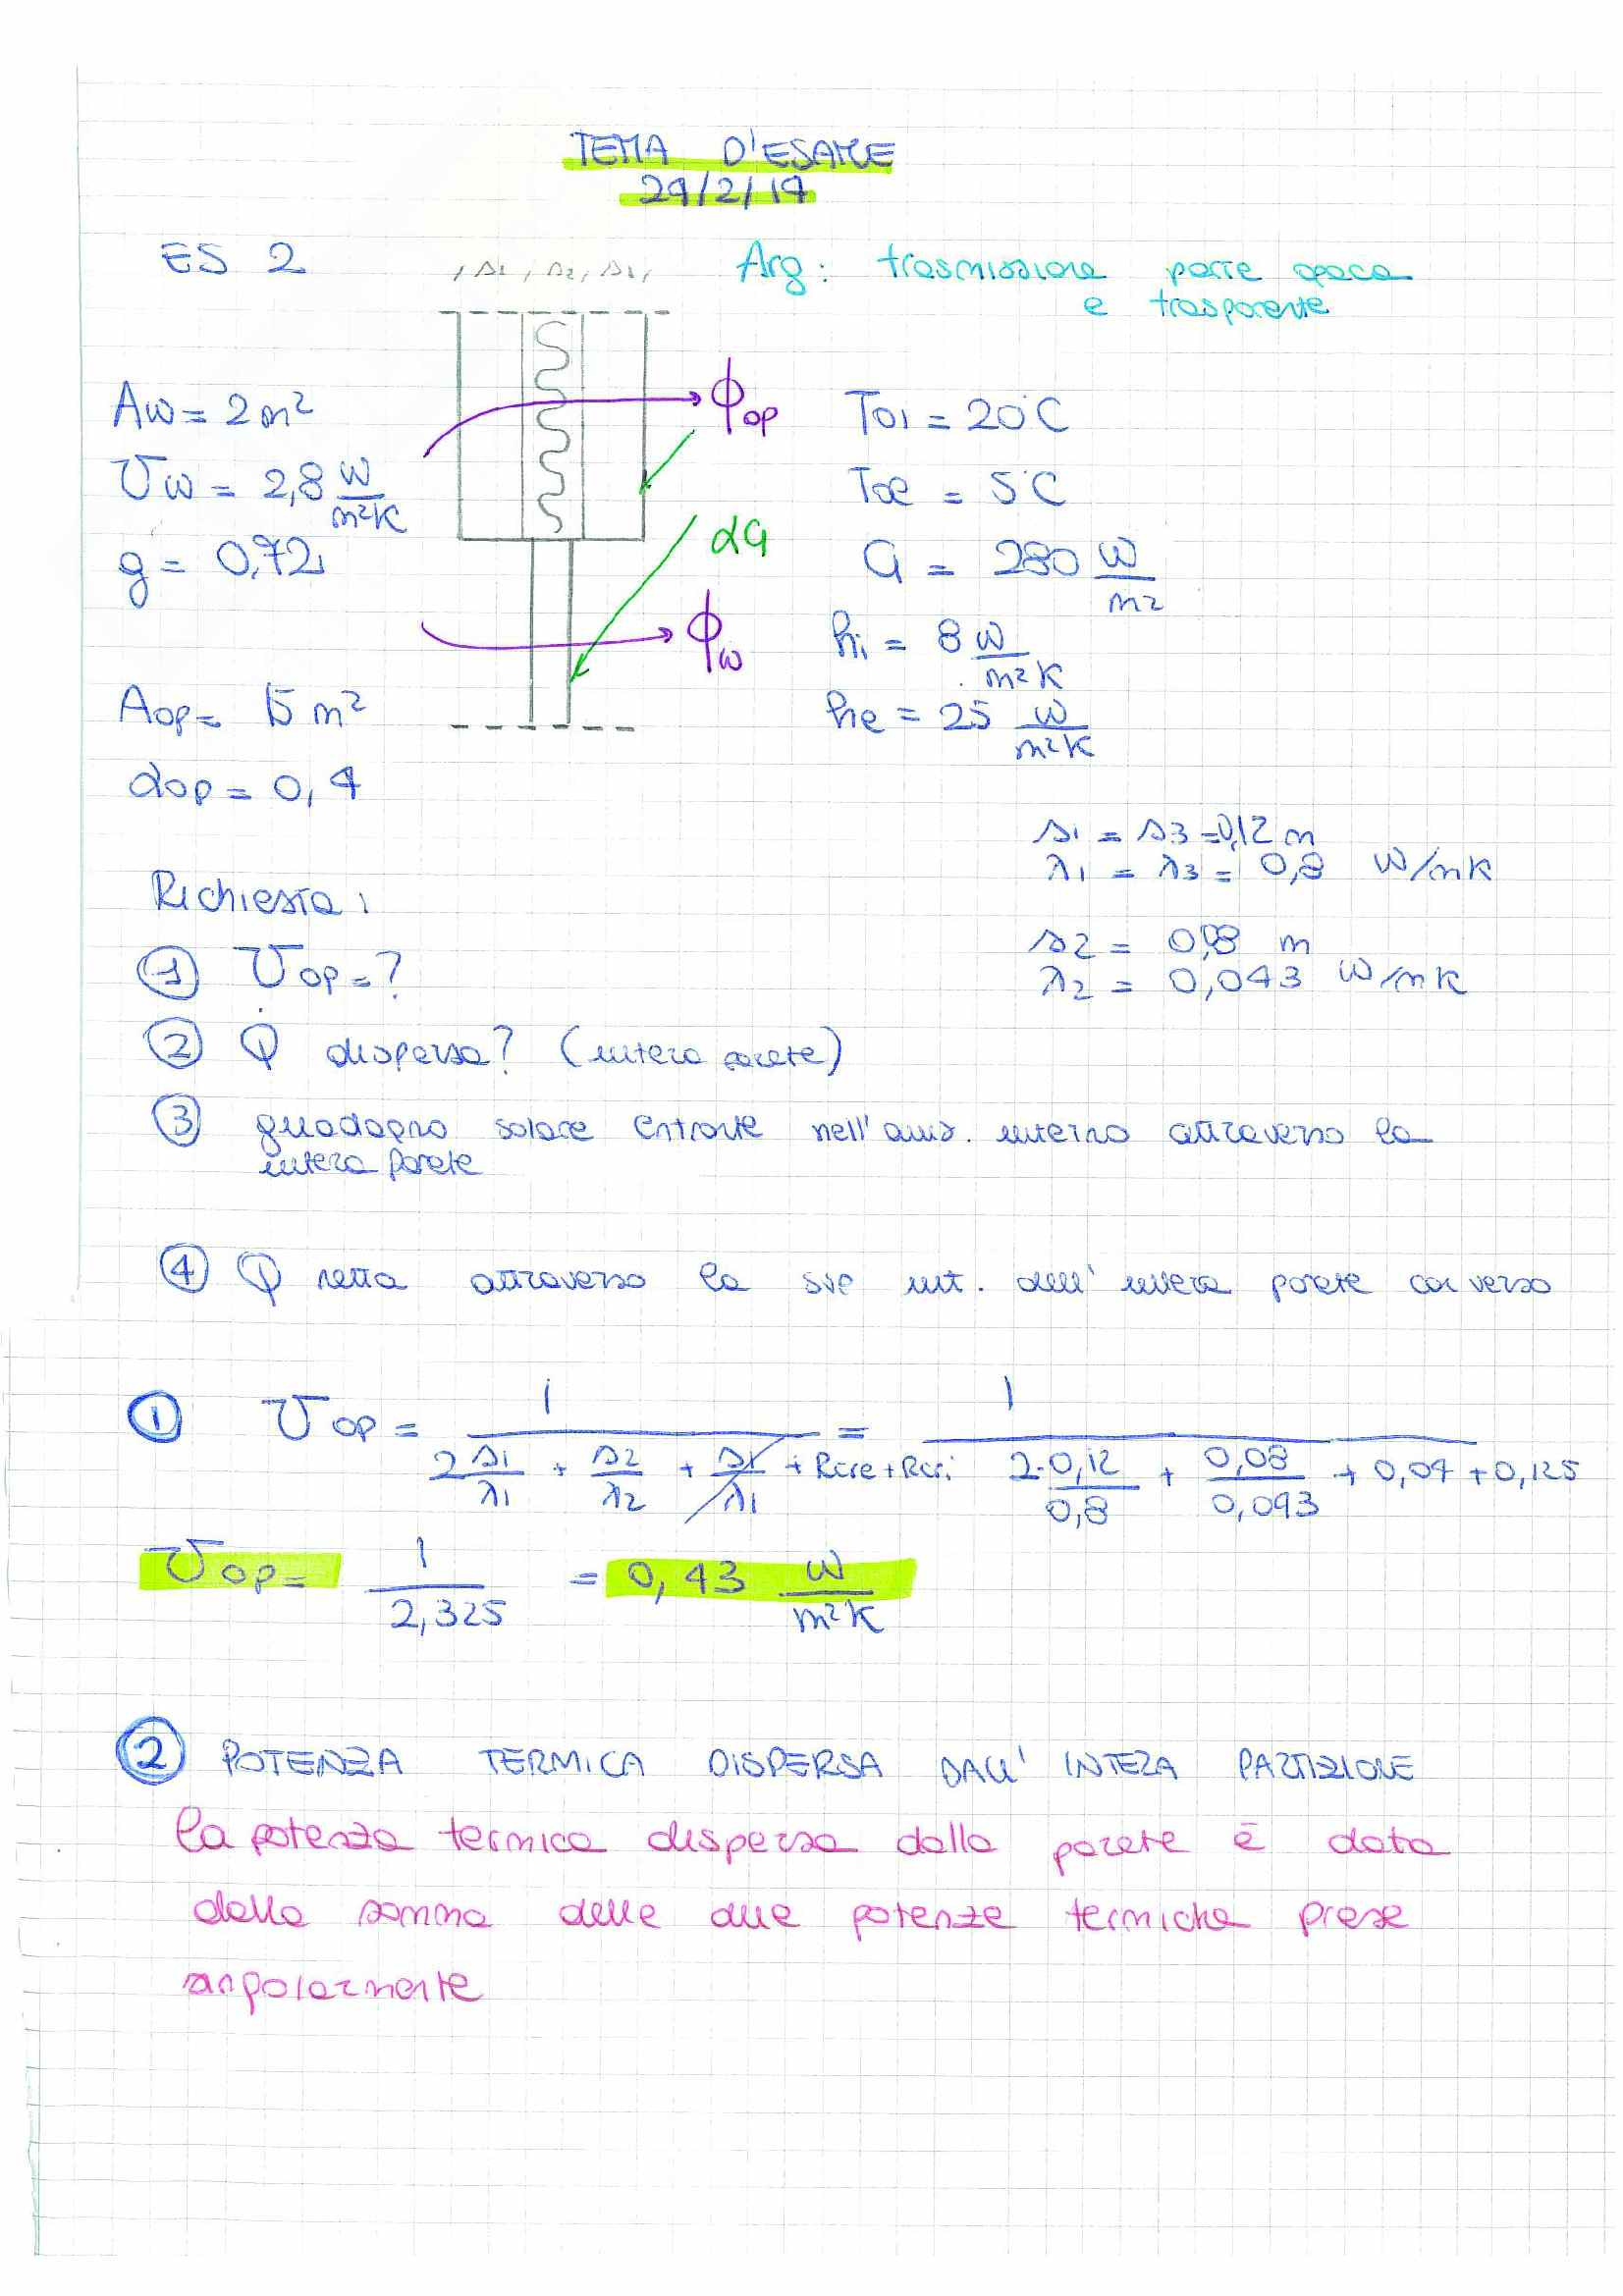 TEMA D'ESAME
24/2/14
ES 2
s1, s2, s1,
Arg: trasmissione parte opaca
e trasparente
Aw = 2m²
Uw = 2,8 W/m²K
g = 0,72
Aop = 15 m²
αop = 0,4
ϕop
αG
ϕw
Toi = 20°C
Toe = 5°C
G = 280 W/m²
hi = 8 W/m²K
he = 25 W/m²K
s1 = s3 = 0,12 m
λ1 = λ3 = 0,8 W/mK
s2 = 0,08 m
λ2 = 0,043 W/mK
Richiesta:
① Uop = ?
② Q dispersa? (intera parete)
③ guadagno solare entrante nell'amb. interno attraverso la
intera parete
④ Q netta attraverso la sup int. dell'intera parete con verso
① Uop = 1 / (2 s1/λ1 + s2/λ2 + s1/λ1 + Rcre + Rcri) = 1 / (2·0,12/0,8 + 0,08/0,043 + 0,04 + 0,125)
Uop = 1/2,325 = 0,43 W/m²K
② POTENZA TERMICA DISPERSA DALL'INTERA PARTIZIONE
la potenza termica dispersa dalla parete è data
dalla somma delle due potenze termiche prese
singolarmente